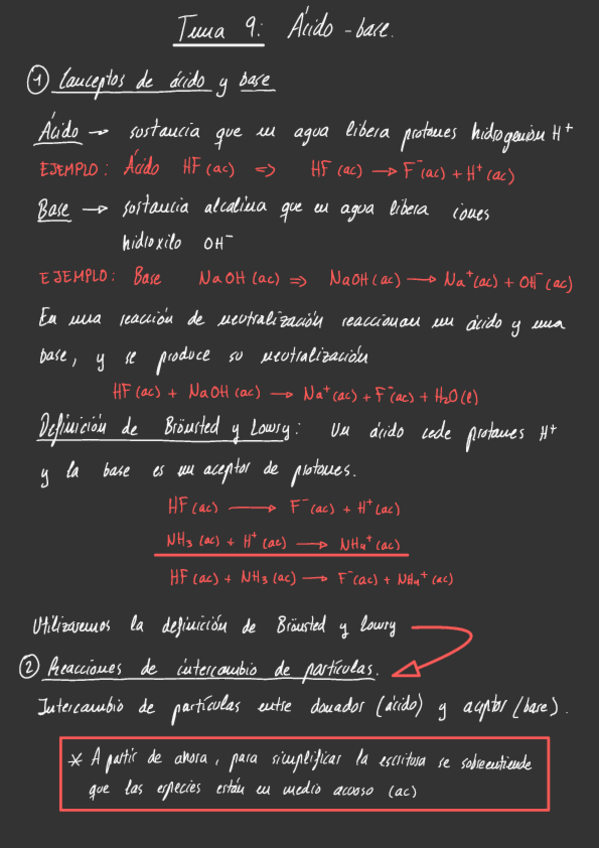 Tema 9: Ácido-base.
① Conceptos de ácido y base
Ácido → sustancia que en agua libera protones hidrogenión H⁺
EJEMPLO: Ácido HF (ac) => HF (ac) → F⁻(ac) + H⁺(ac)
Base → sustancia alcalina que en agua libera iones
hidroxilo OH⁻
EJEMPLO: Base NaOH (ac) => NaOH (ac) → Na⁺(ac) + OH⁻(ac)
En una reacción de neutralización reaccionan un ácido y una
base, y se produce su neutralización
HF(ac) + NaOH (ac) → Na⁺(ac) + F⁻(ac) + H₂O(l)
Definición de Brönsted y Lowry: Un ácido cede protones H⁺
y la base es un aceptor de protones.
HF(ac) → F⁻(ac) + H⁺(ac)
NH₃ (ac) + H⁺(ac) → NH₄⁺(ac)
HF(ac) + NH₃ (ac) → F⁻(ac) + NH₄⁺(ac)
Utilizaremos la definición de Brönsted y Lowry
② Reacciones de intercambio de partículas.
Intercambio de partículas entre donador (ácido) y aceptor (base).
* A partir de ahora, para simplificar la escritura se sobreentiende
que las especies están en medio acuoso (ac)